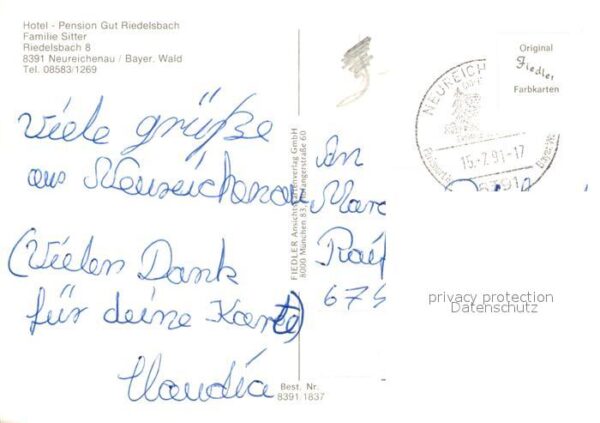 Hotel - Pension Gut Riedelsbach
Familie Sitter
Riedelsbach 8
8391 Neureichenau / Bayer. Wald
Tel. 08583/1269
Original
Fiedler
Farbkarten
NEUREICH
15.-7.91-17
8391
viele grüße
aus Neureichenau
(Vielen Dank
für deine Karte)
Claudia
FIEDLER Ansichtskartenverlag GmbH
8000 München 83,
An
Marc
Ralf
675
privacy protection
Datenschutz
Best. Nr.
8391 1837